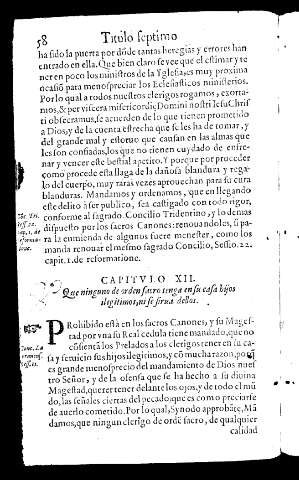 58 Titulo septimo
ha sido la puerta por dõde tantas heregias y errores han
entrado en ella. Que bien claro se vee que el estimar y te
ner en poco los ministros de la Yglesia, es muy proxima
ocasiõ para menospreciar los Eclesiasticos ministerios.
Por lo qual a todos nuestros clerigos rogamos, exorta-
mos, & per viscera misericordiæ Domini nostri Iesu Chris
ti obsecramus, se acuerden de lo que tienen prometido
a Dios, y de la cuenta estrecha que se les ha de tomar, y
del grande mal y estoruo que causan en las almas que
les son confiadas, los que no tienen cuydado de enfre-
nar y vencer este bestial apetito. Y porque por proceder
como procede esta llaga de la dañosa blandura y rega-
lo del cuerpo, muy raras vezes aprouechan para su cura
blanduras. Mandamos y ordenamos, que en llegando
este delito a ser publico, sea castigado con todo rigor,
conforme al sagrado Concilio Tridentino, y lo demas
dispuesto por los sacros Canones: renouandolos, si pa-
ra la enmienda de algunos fuere menester, como los
manda renouar el mesmo sagrado Concilio, Sessio. 22.
capit. 1. de reformatione.
CAPITVLO XII.
Que ninguno de orden sacro tenga en su casa hijos
ilegitimos, ni se sirua dellos.
PRohibido està en los sacros Canones, y su Mages-
tad por vna su Real cedula tiene mandado, que no
cõsientã los Prelados a los clerigos tener en su ca-
sa y seruicio sus hijos ilegitimos, y cõ mucha razon, porq̃
es grande menosprecio del mandamiento de Dios nues
tro Señor, y de la ofensa que se ha hecho a su diuina
Magestad, querer tener delante los ojos, y de todo el mũ
do, las señales ciertas del pecado: que es como preciarse
de auerlo cometido. Por lo qual, Synodo approbãte, Mã
damos, que ningun clerigo de ordẽ sacro, de qualquier
calidad